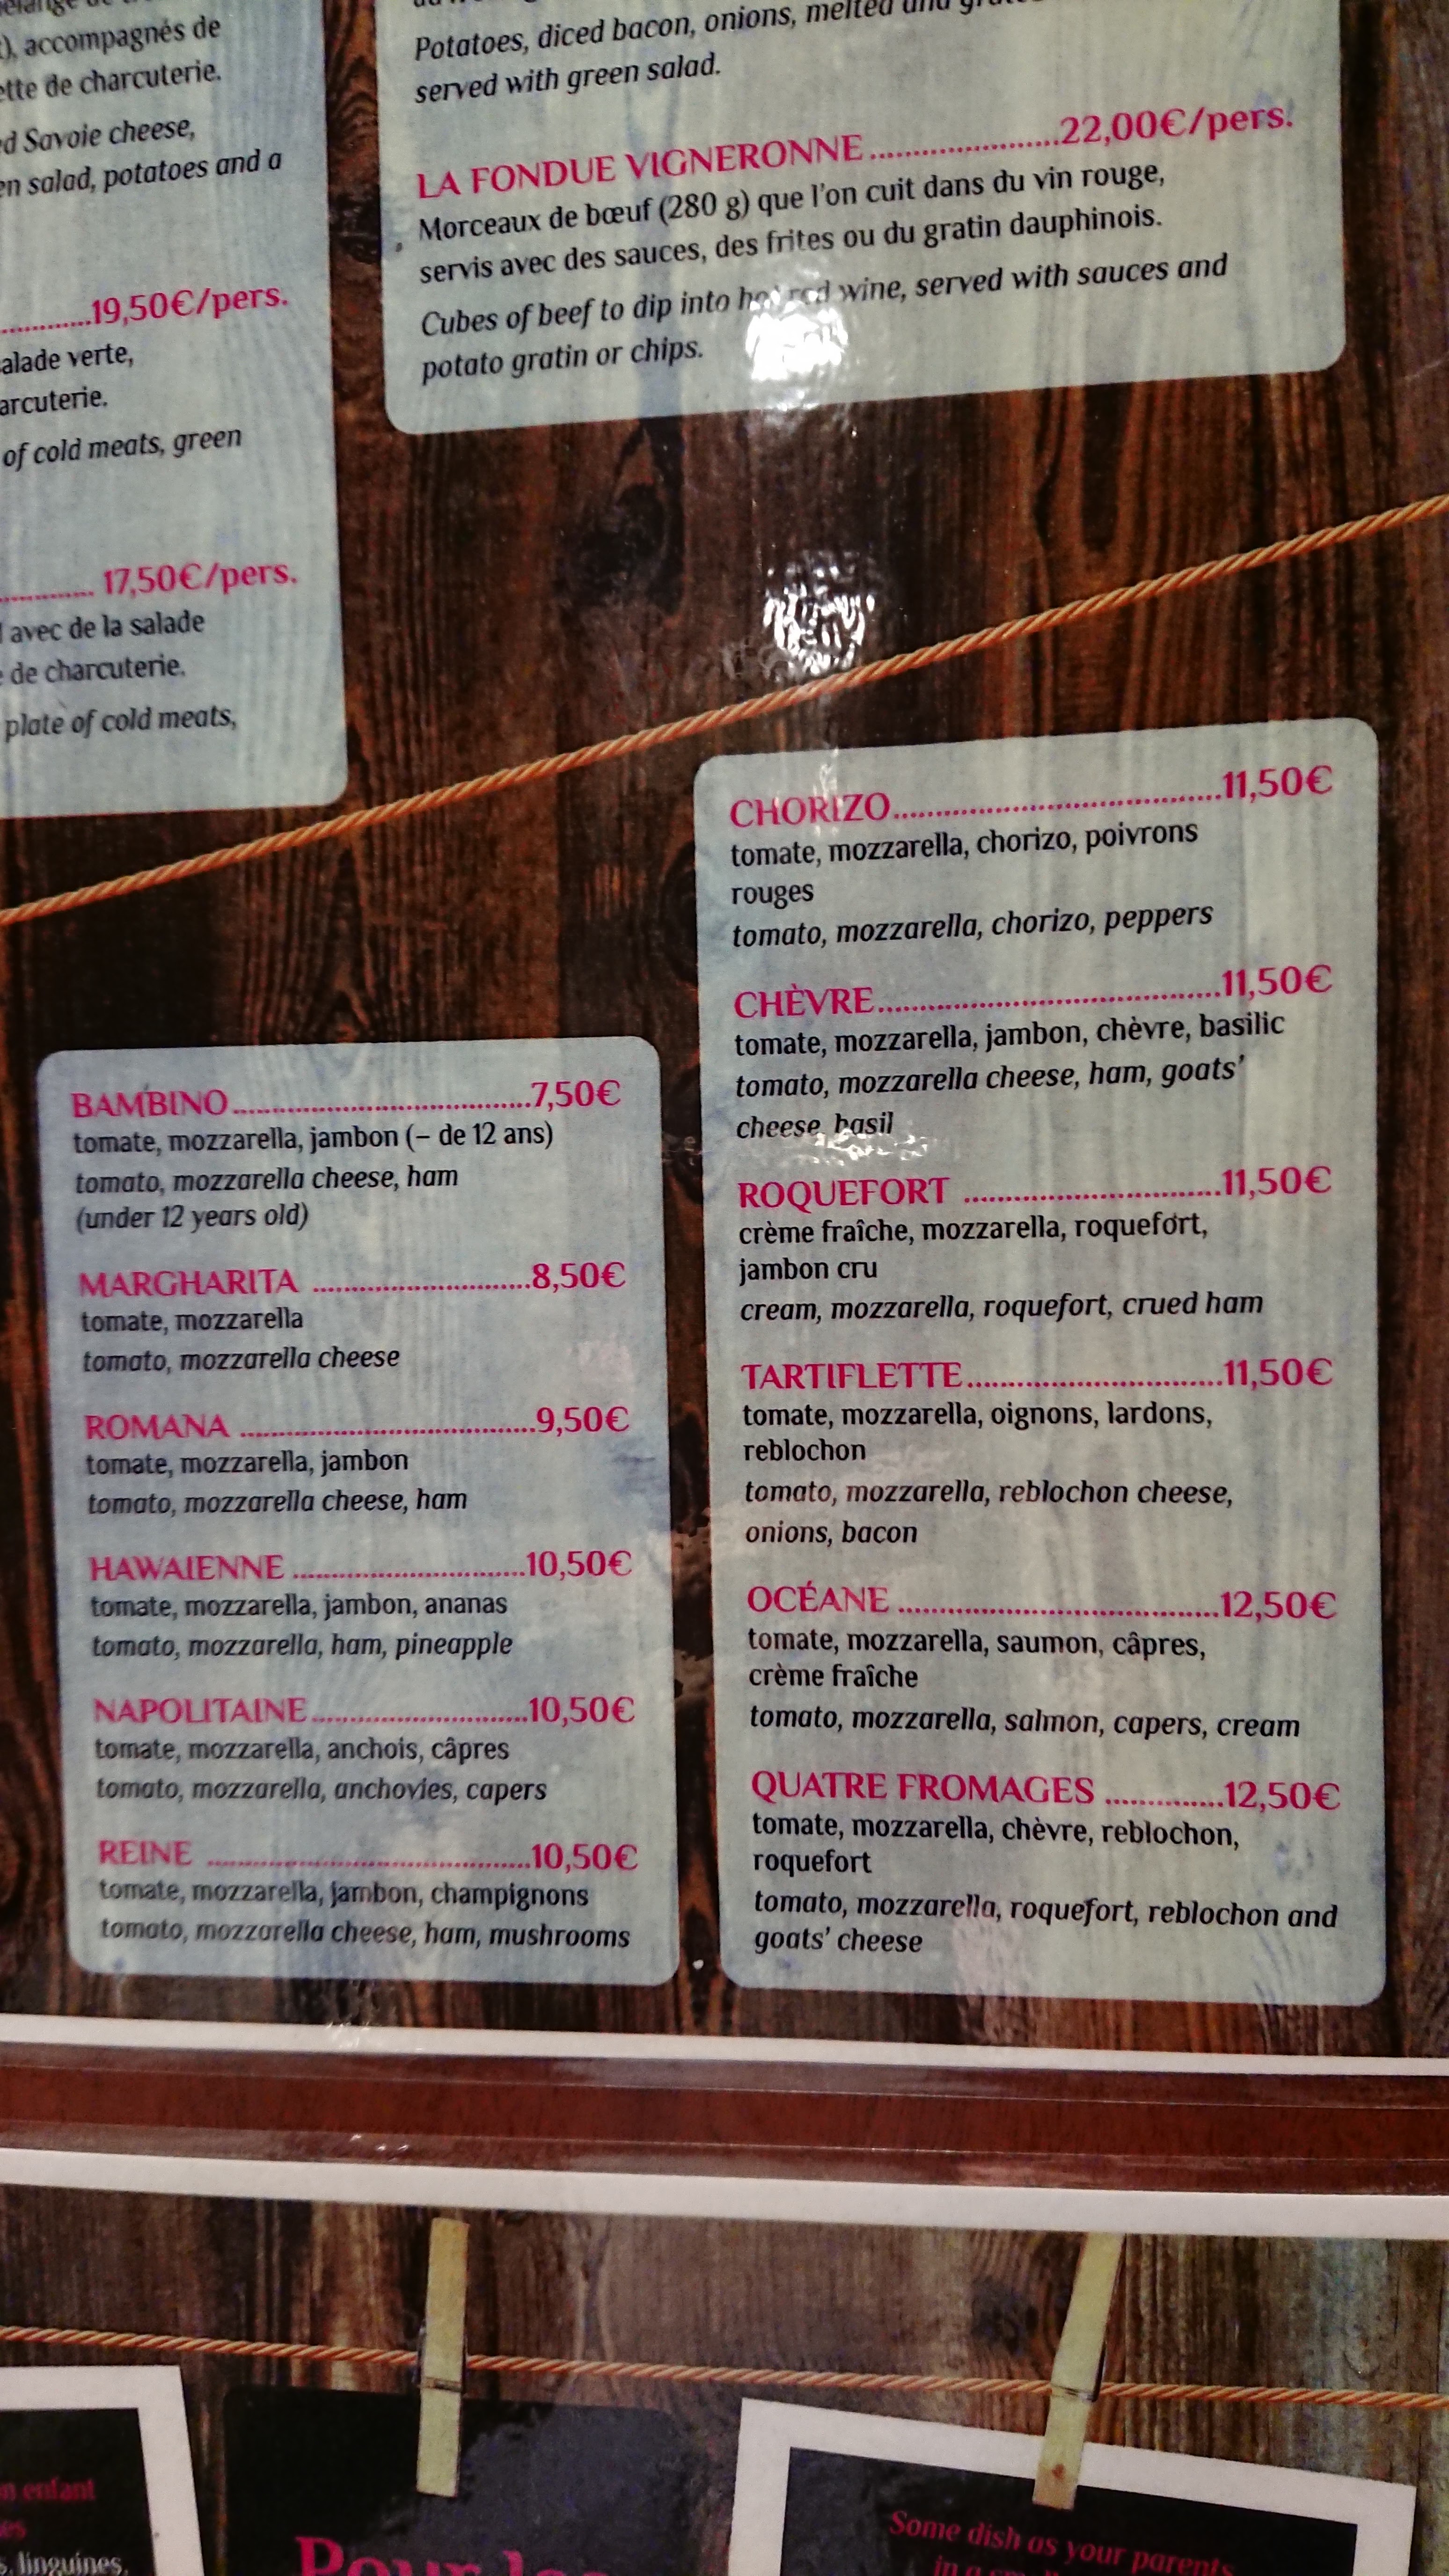 ), accompagnés de
ette de charcuterie.
d Savoie cheese,
en salad, potatoes and a
............19,50€/pers.
alade verte,
arcuterie.
of cold meats, green
............ 17,50€/pers.
avec de la salade
de charcuterie.
plate of cold meats,
Potatoes, diced bacon, onions, melted and
served with green salad.
LA FONDUE VIGNERONNE......................22,00€/pers.
Morceaux de bœuf (280 g) que l'on cuit dans du vin rouge,
servis avec des sauces, des frites ou du gratin dauphinois.
Cubes of beef to dip into hot red wine, served with sauces and
potato gratin or chips.
BAMBINO....................................7,50€
tomate, mozzarella, jambon (– de 12 ans)
tomato, mozzarella cheese, ham
(under 12 years old)
MARGHARITA ..........................8,50€
tomate, mozzarella
tomato, mozzarella cheese
ROMANA ...................................9,50€
tomate, mozzarella, jambon
tomato, mozzarella cheese, ham
HAWAIENNE ............................10,50€
tomate, mozzarella, jambon, ananas
tomato, mozzarella, ham, pineapple
NAPOLITAINE..........................10,50€
tomate, mozzarella, anchois, câpres
tomato, mozzarella, anchovies, capers
REINE .......................................10,50€
tomate, mozzarella, jambon, champignons
tomato, mozzarella cheese, ham, mushrooms
CHORIZO.......................................11,50€
tomate, mozzarella, chorizo, poivrons
rouges
tomato, mozzarella, chorizo, peppers
CHÈVRE.........................................11,50€
tomate, mozzarella, jambon, chèvre, basilic
tomato, mozzarella cheese, ham, goats'
cheese, basil
ROQUEFORT ...............................11,50€
crème fraîche, mozzarella, roquefort,
jambon cru
cream, mozzarella, roquefort, crued ham
TARTIFLETTE...............................11,50€
tomate, mozzarella, oignons, lardons,
reblochon
tomato, mozzarella, reblochon cheese,
onions, bacon
OCÉANE .......................................12,50€
tomate, mozzarella, saumon, câpres,
crème fraîche
tomato, mozzarella, salmon, capers, cream
QUATRE FROMAGES ..............12,50€
tomate, mozzarella, chèvre, reblochon,
roquefort
tomato, mozzarella, roquefort, reblochon and
goats' cheese
enfant
linguines,
Pour les
Some dish as your parents
in a